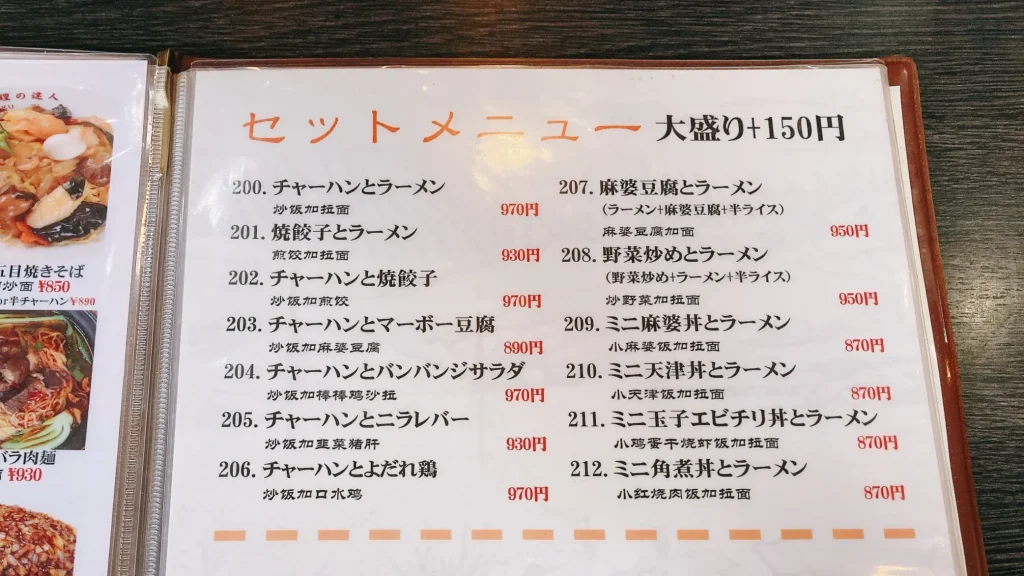 理の達人
五目焼きそば
炒面 ¥850
or半チャーハン¥890
バラ肉麺
¥930
セットメニュー 大盛り+150円
200. チャーハンとラーメン
炒饭加拉面 970円
201. 焼餃子とラーメン
煎饺加拉面 930円
202. チャーハンと焼餃子
炒饭加煎饺 970円
203. チャーハンとマーボー豆腐
炒饭加麻婆豆腐 890円
204. チャーハンとバンバンジサラダ
炒饭加棒棒鸡沙拉 970円
205. チャーハンとニラレバー
炒饭加韭菜猪肝 930円
206. チャーハンとよだれ鶏
炒饭加口水鸡 970円
207. 麻婆豆腐とラーメン
(ラーメン+麻婆豆腐+半ライス)
麻婆豆腐加面 950円
208. 野菜炒めとラーメン
(野菜炒め+ラーメン+半ライス)
炒野菜加拉面 950円
209. ミニ麻婆丼とラーメン
小麻婆饭加拉面 870円
210. ミニ天津丼とラーメン
小天津饭加拉面 870円
211. ミニ玉子エビチリ丼とラーメン
小鸡蛋干烧虾饭加拉面 870円
212. ミニ角煮丼とラーメン
小红烧肉饭加拉面 870円